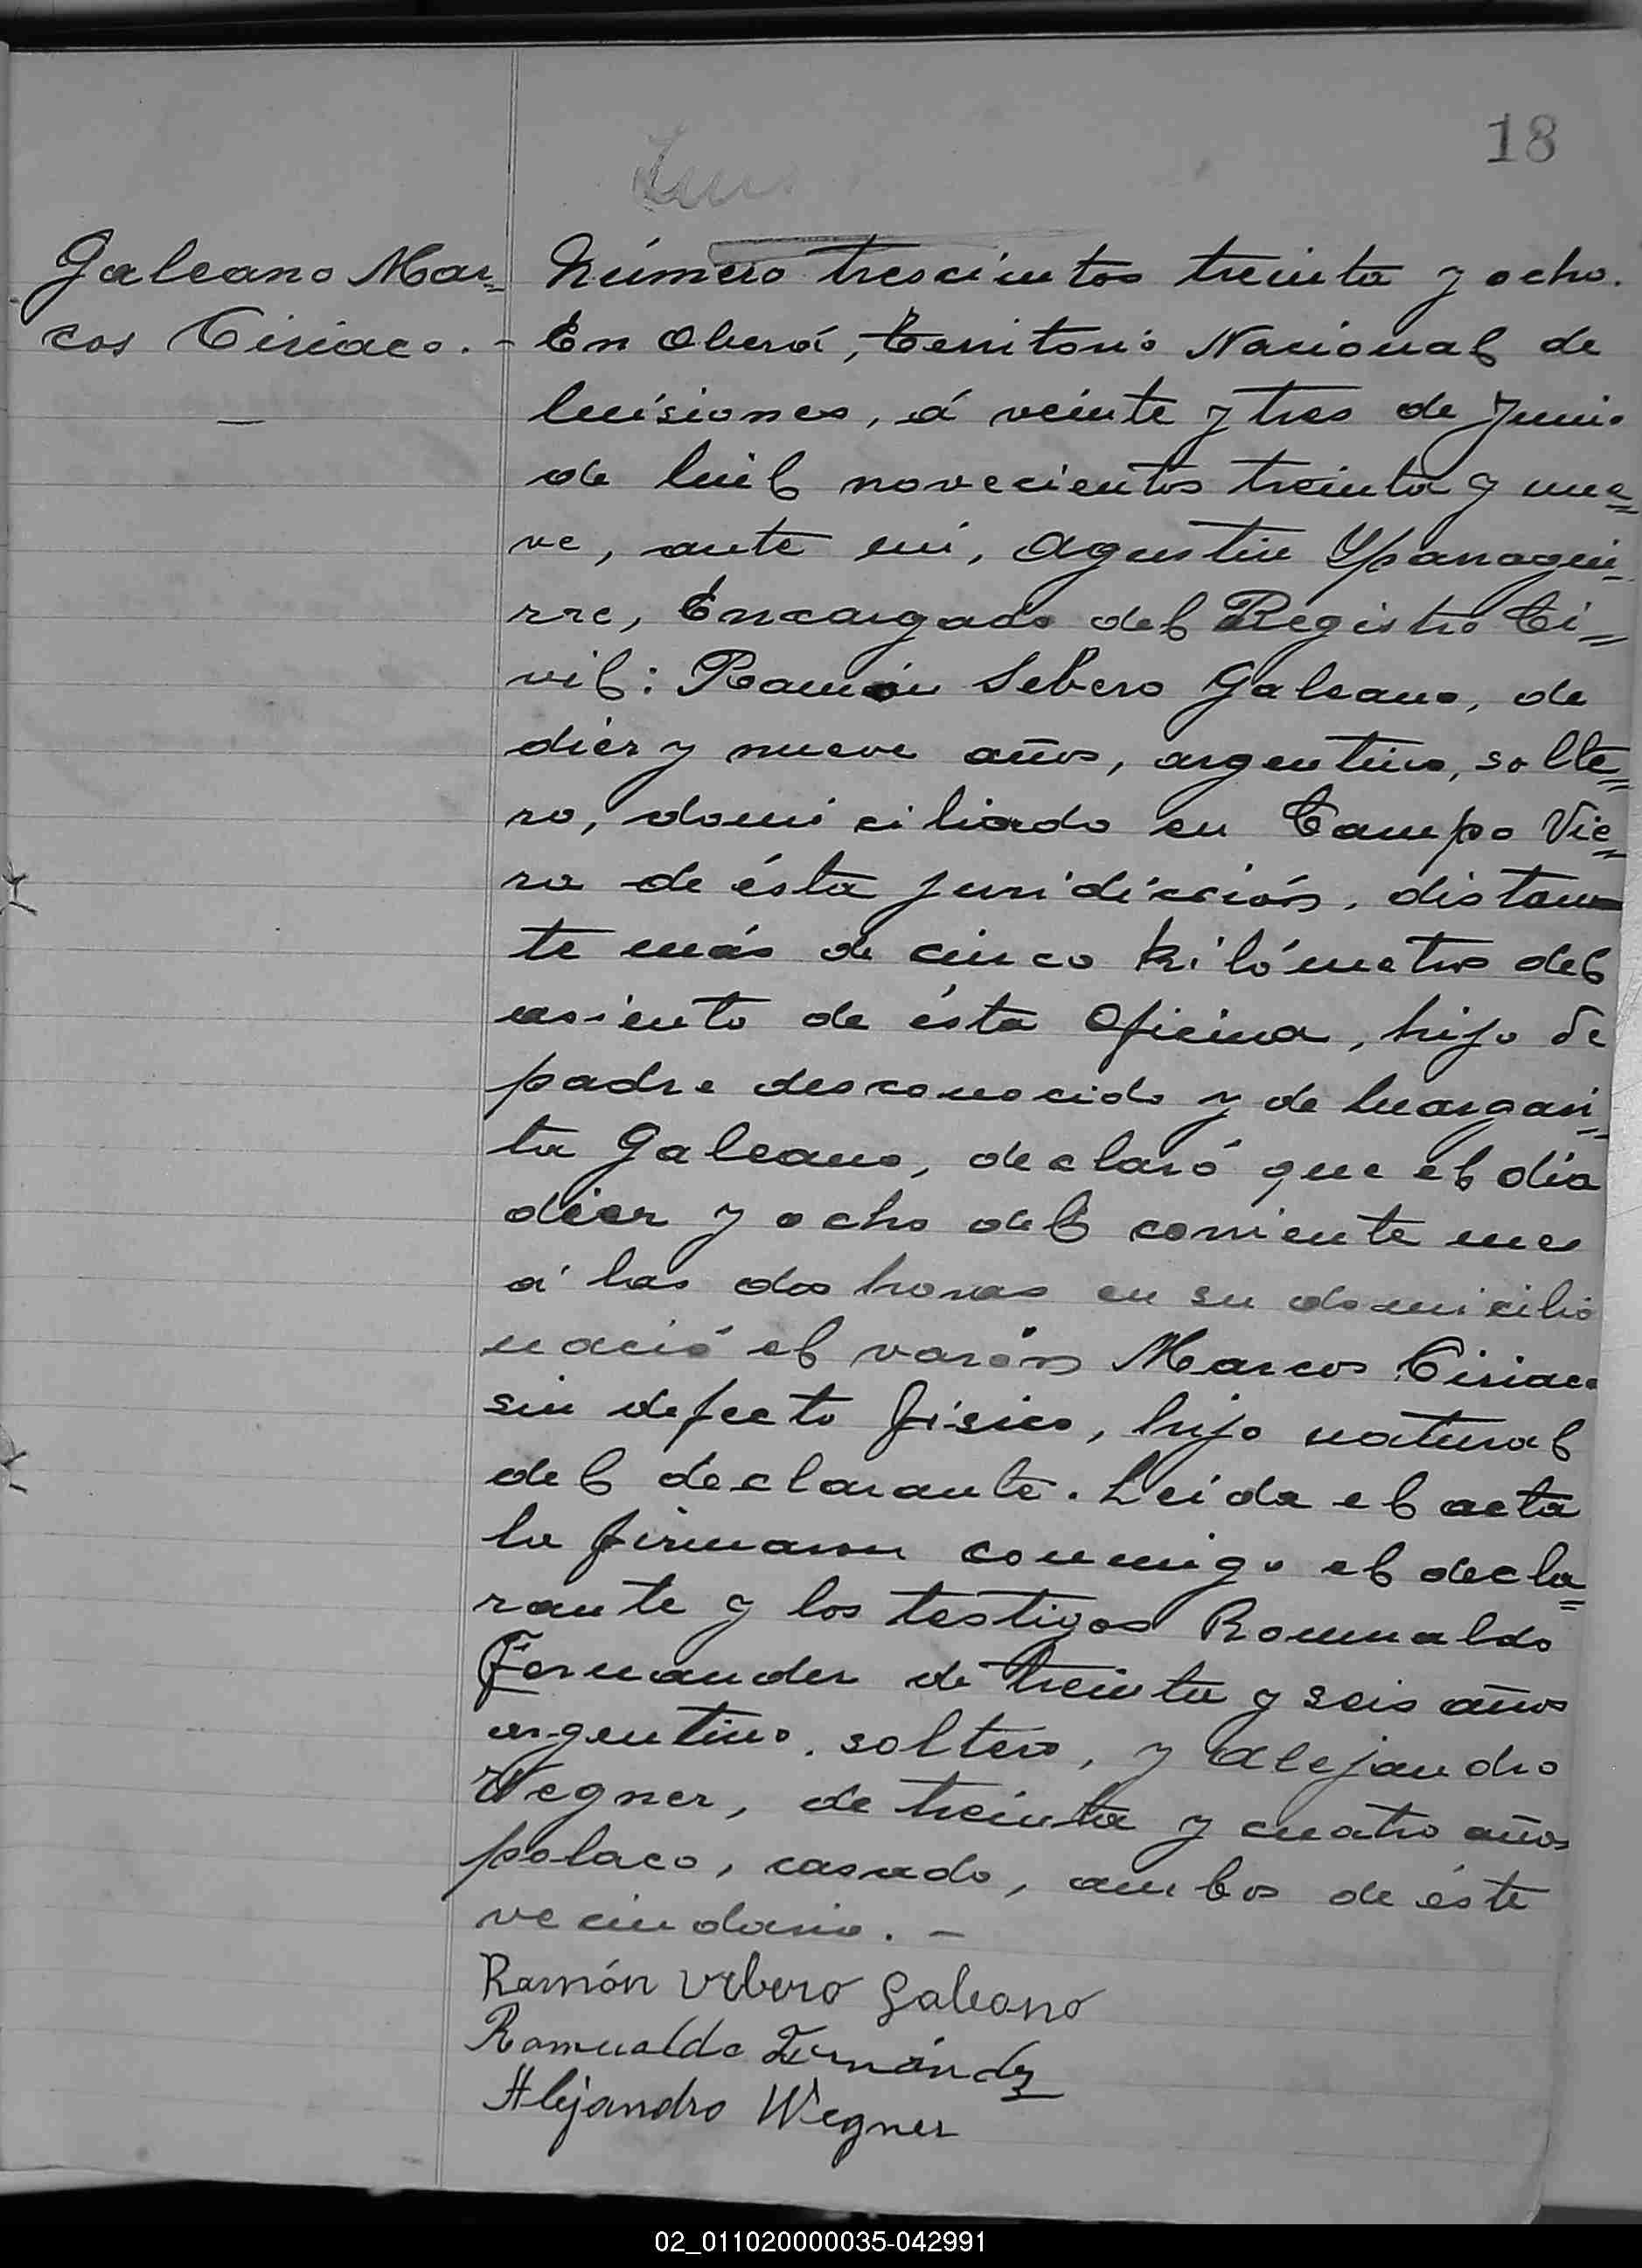 18
Galeano Mar=
cos Ciriaco. -
Número trescientos treinta y ocho.
En Oberá, Territorio Nacional de
Misiones, á veinte y tres de Junio
de mil novecientos treinta y nue=
ve, ante mi, Agustin Yparragui=
rre, Encargado del Registro Ci=
vil: Ramón Sebero Galeano, de
diez y nueve años, argentino, solte=
ro, domiciliado en Campo Vie=
ra de ésta juridicción, distan
te más de cinco kilómetros del
asiento de ésta Oficina, hijo de
padre desconocido y de Margari=
ta Galeano, declaró que el día
diez y ocho del corriente mes
á las dos horas en su domicilio
nació el varón Marcos Ciriaco
sin defecto fisico, hijo natural
del declarante. Leida el acta
la firmaron conmigo el decla=
rante y los testigos Romualdo
Fernandez de treinta y seis años
argentino, soltero, y Alejandro
Wegner, de treinta y cuatro años
polaco, casado, ambos de éste
vecindario. -
Ramón Galeano
Romualdo Fernández
Alejandro Wegner
02_011020000035-042991